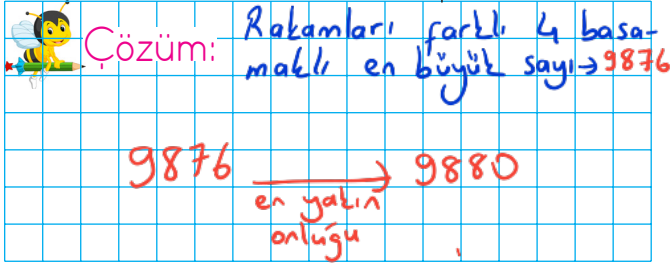 Çözüm:
Rakamları farklı 4 basa-
maklı en büyük sayı→9876
9876 → 9880
en yakın
onluğu